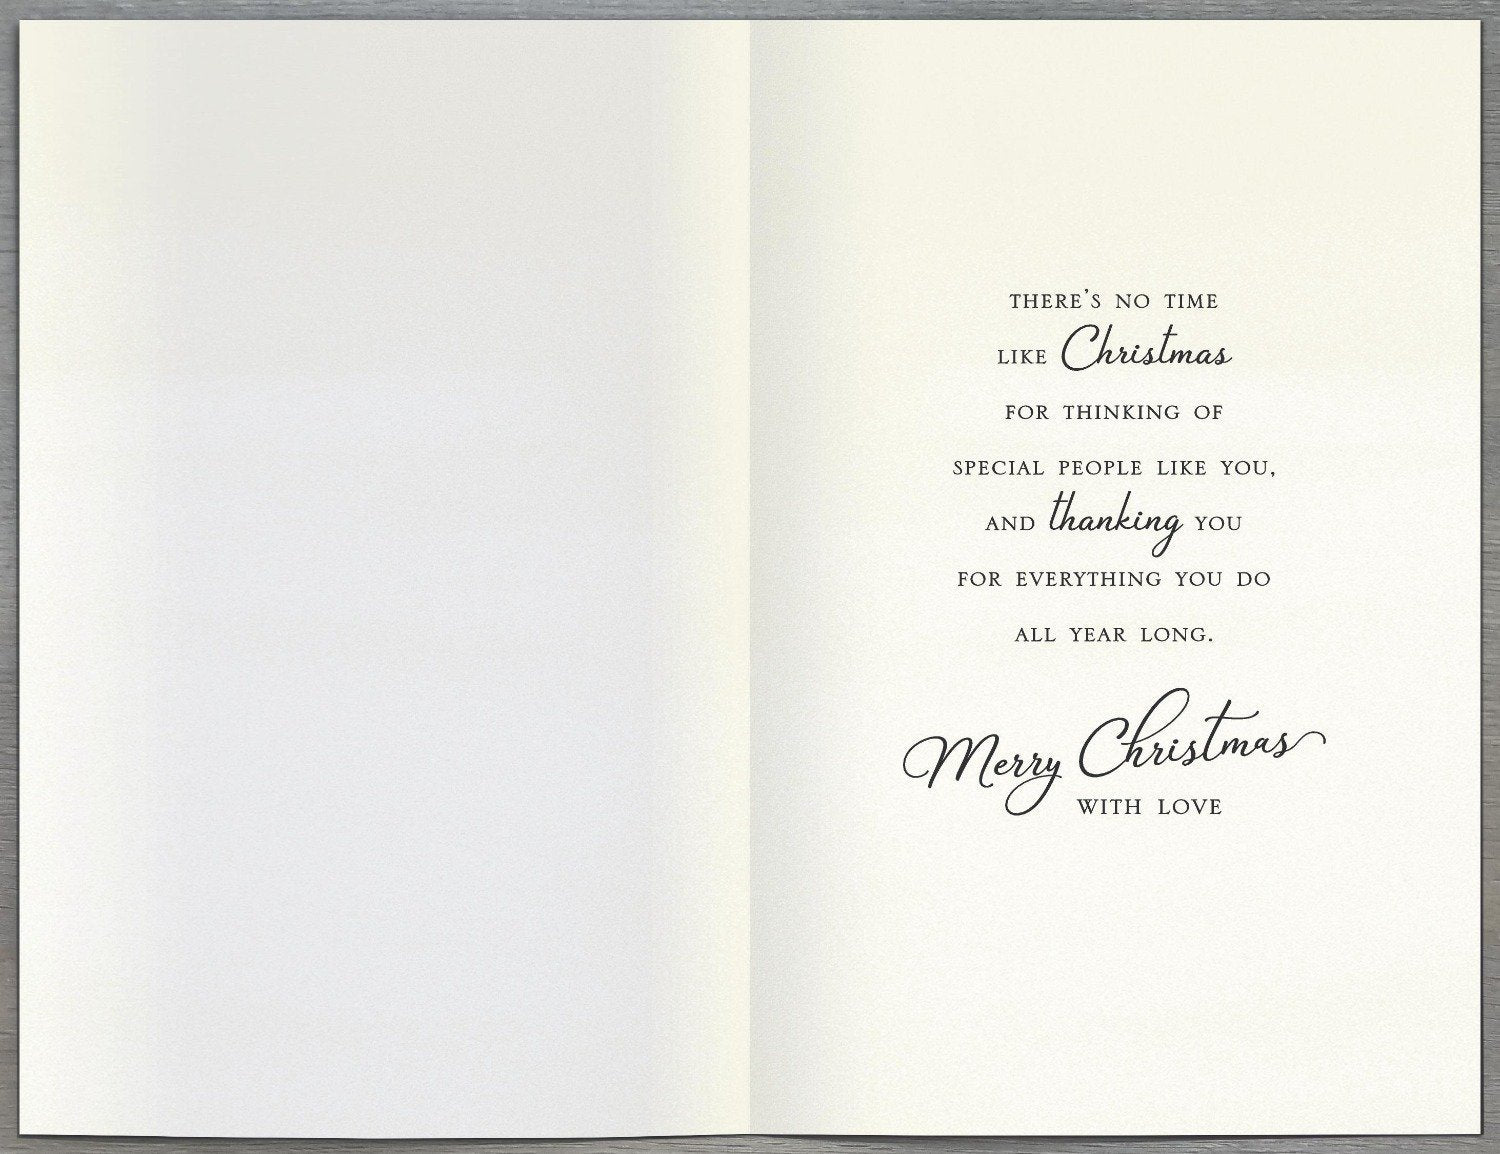 THERE'S NO TIME
LIKE Christmas
FOR THINKING OF
SPECIAL PEOPLE LIKE YOU,
AND thanking YOU
FOR EVERYTHING YOU DO
ALL YEAR LONG.
Merry Christmas
WITH LOVE